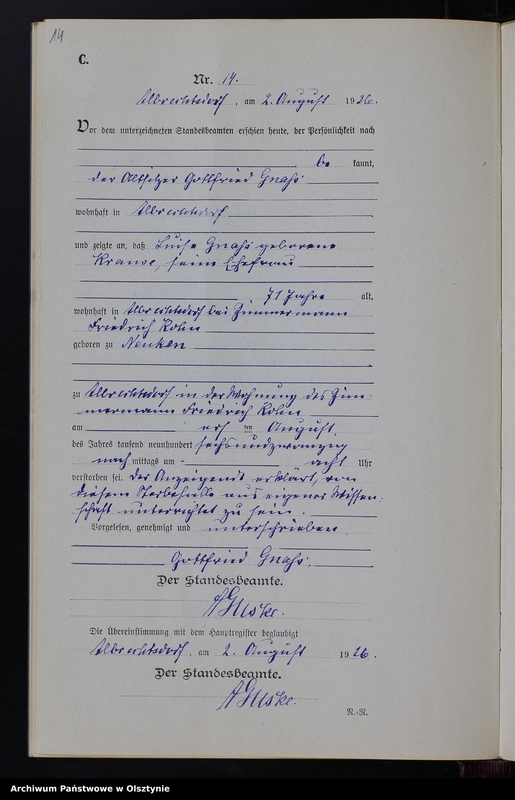 14
C.
Nr. 14.
Albrechtsdorf, am 2. August 1926.
Vor dem unterzeichneten Standesbeamten erschien heute, der Persönlichkeit nach
be kannt,
der Altsitzer Gottfried Gnaß
wohnhaft in Albrechtsdorf
und zeigte an, daß Luise Gnaß geborene
Krause, seine Ehefrau
71 Jahre alt,
wohnhaft in Albrechtsdorf bei Zimmermann
Friedrich
geboren zu Neuken
zu Albrechtsdorf in der Wohnung des Zim-
mermann Friedrich
am ersten August
des Jahres tausend neunhundert sechsundzwanzig
nach mittags um acht Uhr
verstorben sei. Der Anzeigende erklärt, von
diesem Sterbefalle aus eigener Wissen-
schaft unterrichtet zu sein.
Vorgelesen, genehmigt und unterschrieben
Gottfried Gnaß.
Der Standesbeamte.
Die Übereinstimmung mit dem Hauptregister beglaubigt
Albrechtsdorf, am 2. August 1926.
Der Standesbeamte.
N.-R.
Archiwum Państwowe w Olsztynie